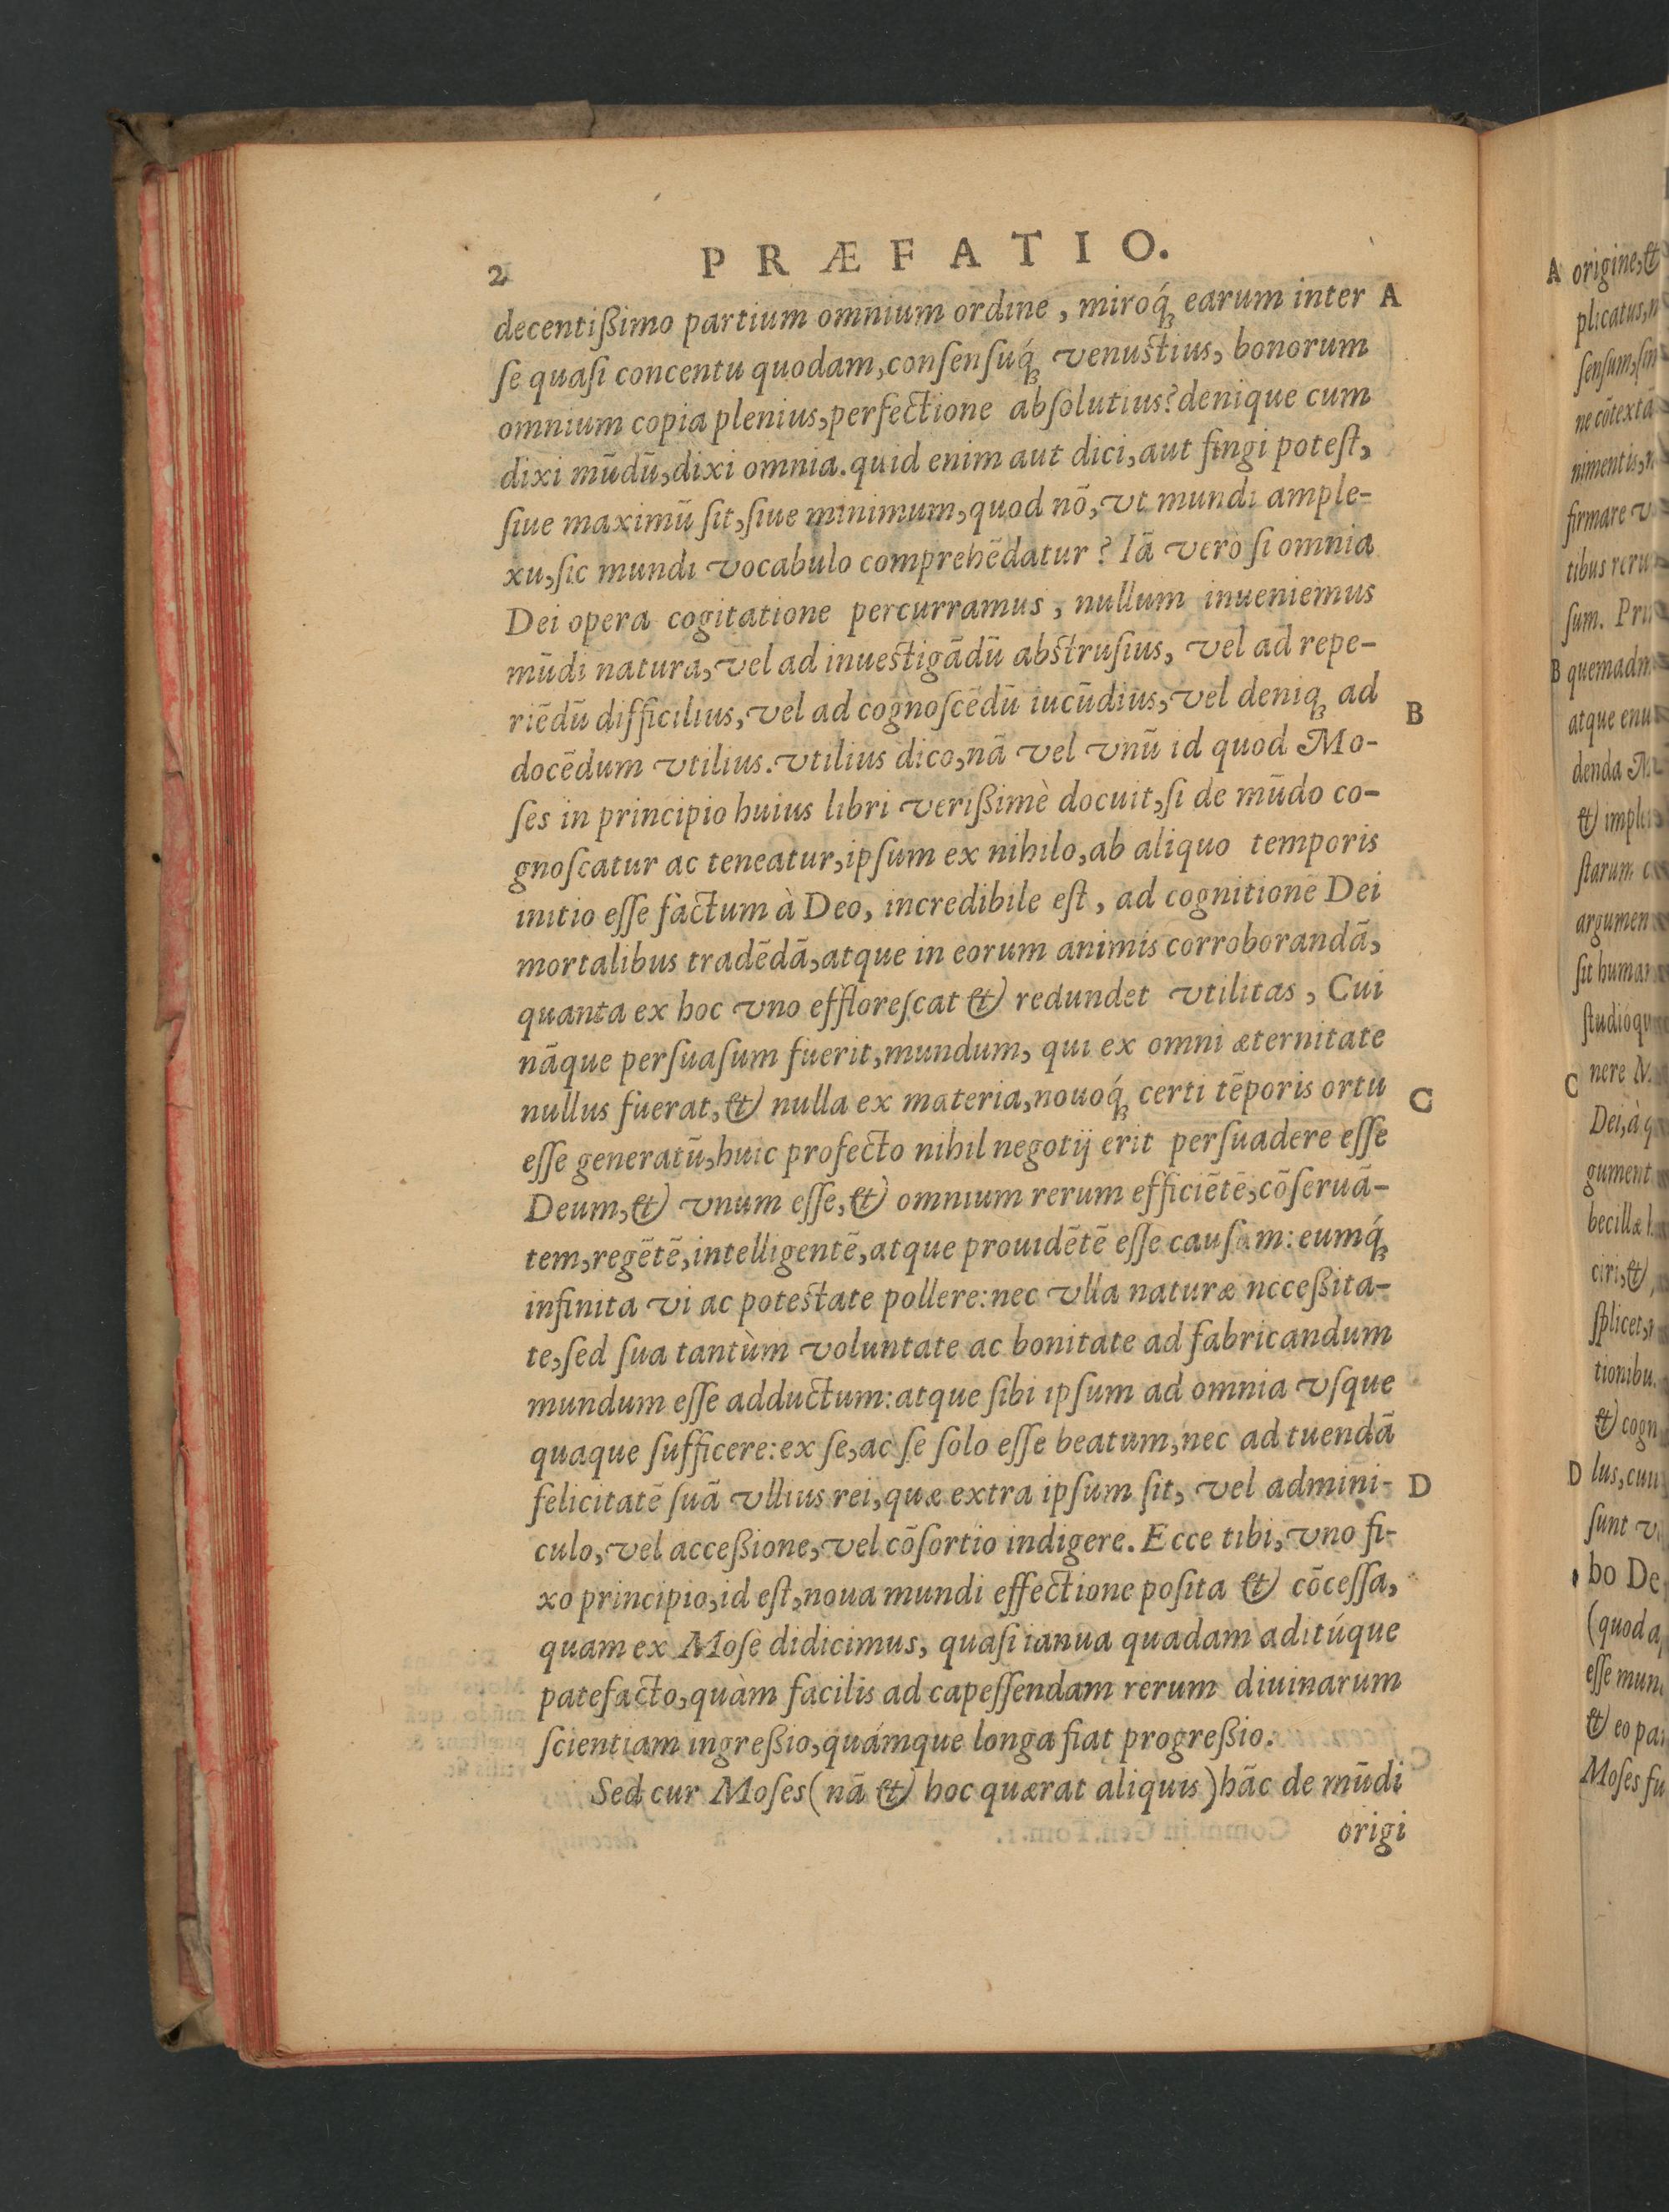 2 PRÆFATIO.
decentißimo partium omnium ordine, miroq́; earum inter A
ſe quaſi concentu quodam, conſenſuq́; venuſtius, bonorum
omnium copia plenius, perfectione abſolutius? denique cum
dixi mūdū, dixi omnia. quid enim aut dici, aut fingi poteſt,
ſiue maximū ſit, ſiue minimum, quod nō, vt mundi ample-
xu, ſic mundi vocabulo comprehēdatur? Iā verò ſi omnia
Dei opera cogitatione percurramus, nullum inueniemus
mūdi natura, vel ad inueſtigādū abſtruſius, vel ad repe-
riēdū difficilius, vel ad cognoſcēdū iucūdius, vel deniq; ad B
docēdum vtilius. vtilius dico, nā vel vnū id quod Mo-
ſes in principio huius libri verißimè docuit, ſi de mūdo co-
gnoſcatur ac teneatur, ipſum ex nihilo, ab aliquo temporis
initio eſſe factum à Deo, incredibile eſt, ad cognitionē Dei
mortalibus tradēdā, atque in eorum animis corroborandā,
quanta ex hoc vno effloreſcat & redundet vtilitas, Cui
nāque perſuaſum fuerit, mundum, qui ex omni æternitate
nullus fuerat, & nulla ex materia, nouoq́; certi tēporis ortu C
eſſe generatū, huic profecto nihil negotij erit perſuadere eſſe
Deum, & vnum eſſe, & omnium rerum efficiētē, cōſeruā-
tem, regētē, intelligentē, atque prouidētē eſſe cauſam: eumq́;
infinita vi ac poteſtate pollere: nec vlla naturæ neceßita-
te, ſed ſua tantùm voluntate ac bonitate ad fabricandum
mundum eſſe adductum: atque ſibi ipſum ad omnia vſque
quaque ſufficere: ex ſe, ac ſe ſolo eſſe beatum, nec ad tuendā
felicitatē ſuā vllius rei, quæ extra ipſum ſit, vel admini- D
culo, vel acceßione, vel cōſortio indigere. Ecce tibi, vno fi-
xo principio, id eſt, noua mundi effectione poſita & cōceſſa,
quam ex Moſe didicimus, quaſi ianua quadam aditúque
patefacto, quàm facilis ad capeſſendam rerum diuinarum
ſcientiam ingreßio, quámque longa fiat progreßio.
Sed cur Moſes (nā & hoc quærat aliquis) hāc de mūdi
origi
A origine, &
plicatus, n
ſenſum, ſin
ne cōtextā
nimentis, n
firmare v
tibus reru
ſum. Pri
B quemadm
atque enu
denda M
& imple
ſtarum c
argumen
ſit human
ſtudióqu
C nere M
Dei, à q
gument
becillæ h
ciri, &
ſplicet,
tionibu
& cogn
D lus, cum
ſunt v
bo De
(quod a
eſſe mun
& eo pa
Moſes fu